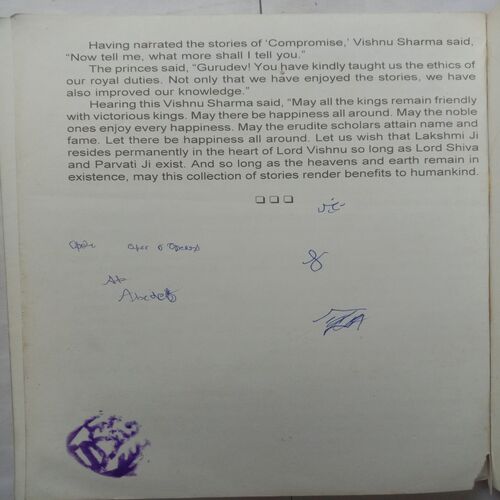 Having narrated the stories of ‘Compromise,’ Vishnu Sharma said,
“Now tell me, what more shall I tell you.”
The princes said, “Gurudev! You have kindly taught us the ethics of
our royal duties. Not only that we have enjoyed the stories, we have
also improved our knowledge.”
Hearing this Vishnu Sharma said, “May all the kings remain friendly
with victorious kings. May there be happiness all around. May the noble
ones enjoy every happiness. May the erudite scholars attain name and
fame. Let there be happiness all around. Let us wish that Lakshmi Ji
resides permanently in the heart of Lord Vishnu so long as Lord Shiva
and Parvati Ji exist. And so long as the heavens and earth remain in
existence, may this collection of stories render benefits to humankind.